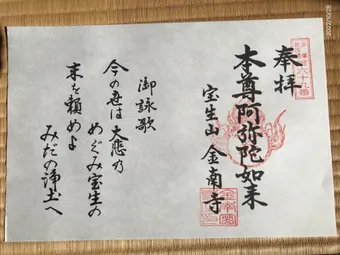 奉拝
本尊阿弥陀如来
宝生山金南寺
御詠歌
今の世は大悲乃
めぐみ宝生の
末を頼めよ
みだの浄土へ
2022/10/29